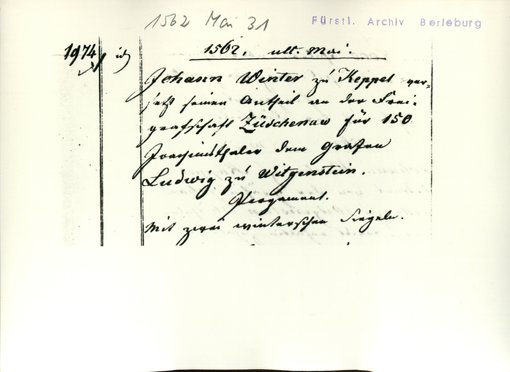 1562 Mai 31
Fürstl. Archiv Berleburg
1974
1562. ult. Mai.
Johann Winter zu Keppel ver-
setzt seinen Antheil an der Frei-
grafschaft Züschenau für 150
Joachimsthaler dem Grafen
Ludwig zu Witgenstein.
Pergament.
Mit zwei winterschen Siegeln.